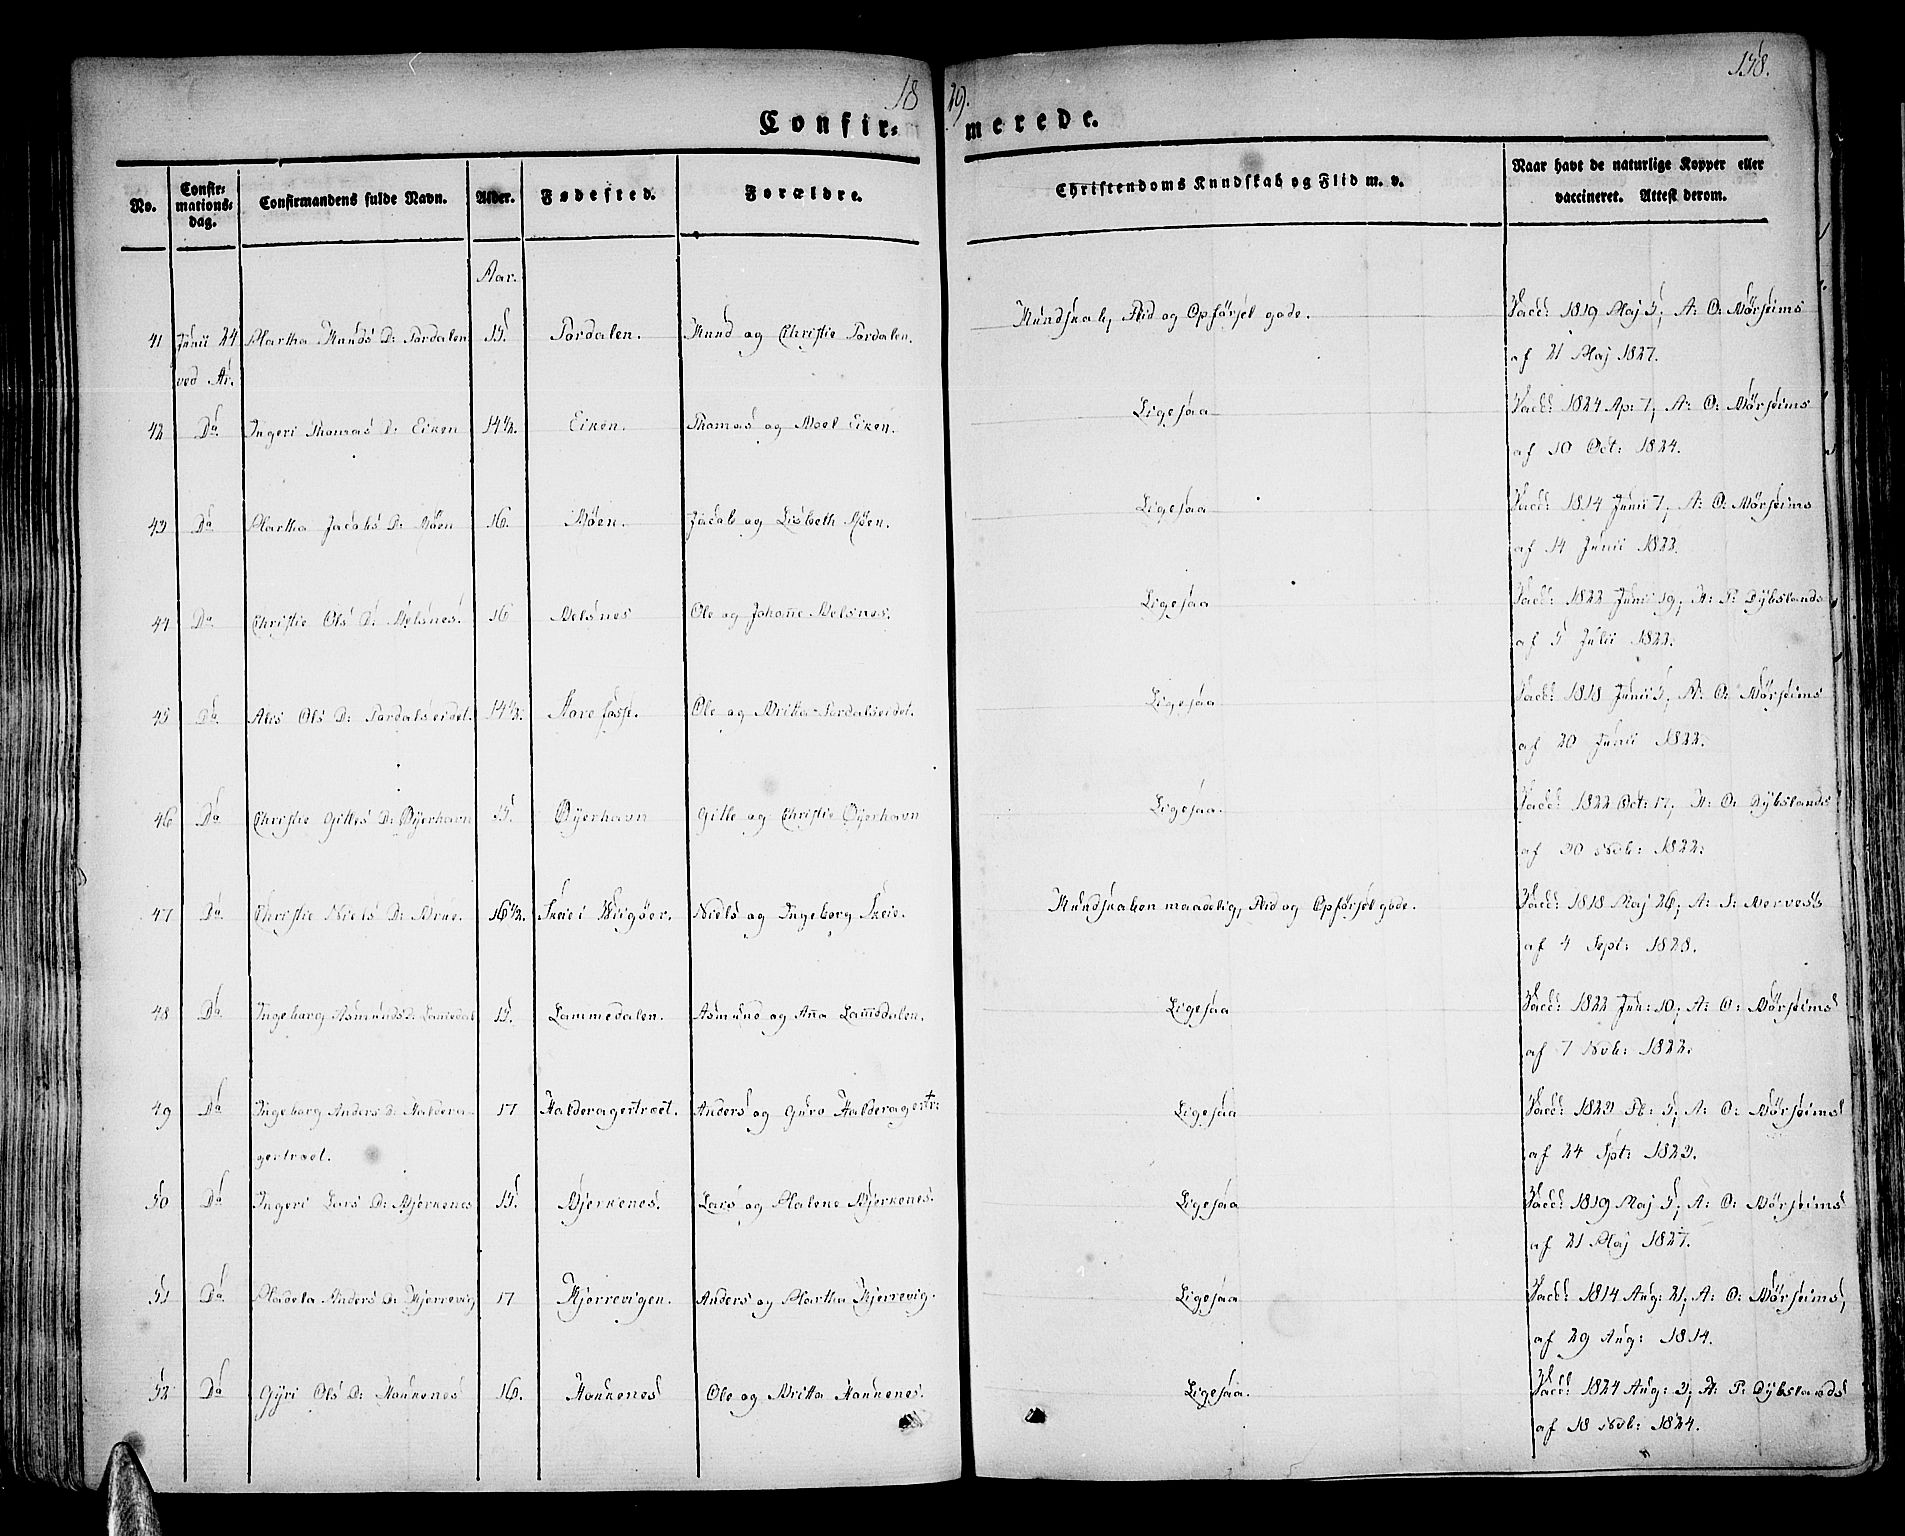 18 29.
158.
Confir= merede.
No.
Confir=
mations=
dag.
Confirmandens fulde Navn.
Alder.
Fødested.
Forældre.
Christendoms Kundskab og Flid m. v.
Naar havt de naturlige Kopper eller
vaccineret. Attest derom.
Aar.
41 Junii 24 Martha Knuds D: Tordalen 15. Tordalen. Knud og Christie Tordalen. Kundskab, Flid og Opførsel gode. Vacc: 1819 Maj 5, A: O: Mørseims
ved Ar. af 21 Maj 1827.
42 Do Ingeri Thomas D: Eiken 14½. Eiken. Thomas og Eiken. Ligesaa Vacc: 1824 Ap: 7, A: O: Mørseims
af 10 Oct: 1824.
43 Do Martha Jacobs D: Møen 16. Møen. Jacob og Lisbeth Møen. Ligesaa Vacc: 1814 Junii 7, A: O: Mørseims
af 14 Junii 1822.
44 Do Christie Ols D: Belsnes. 16 Belsnes Ole og Johañe Belsnes. Ligesaa Vacc: 1822 Junii 19, A: P: Dybslands
af 5 Julii 1822.
45 Do Ols D: Tordalseidet. 14½. Ole og Britta Tordalseidet. Ligesaa Vacc: 1818 Junii 5, A: O: Mørseims
af 20 Junii 1822.
46 Do Christie Gitles D: Øyerhavn 15. Øyerhavn Gitle og Christie Øyerhavn Ligesaa. Vacc: 1822 Oct: 17, A: O: Dybslands
af 30 Nvb: 1822.
47 Do Christie Niels D: Brue. 16½. Skeie i Niels og Ingeborg Skeie. Kundskaben maadelig, Flid og Opførsel gode. Vacc: 1818 Maj 26, A: S:
af 4 Sept: 1828.
48 Do Ingeborg Asmunds D: 15. Lammedalen. Asmund og Aña Lam̃edalen. Ligesaa Vacc: 1822 Jun: 10, A: O: Mørseims
af 7 Nvb: 1822.
49 Do Ingeborg Anders D: Haldera= 17 Halderagertræet. Anders og Guro Halderagertr: Ligesaa Vacc: 1823 5, A: O: Mørseims
gertræet. af 24 Spt: 1823.
50 Do Ingeri Lars D: Bjerkenes 15. Bjerkenes. Lars og Malene Bjerkenes. Ligesaa Vacc: 1819 Maj 5, A: O: Mørseims
af 21 Maj 1827.
51 Do Madela Anders D: Kjerrevig 17 Kjerrevigen. Anders og Martha Kjerrevig. Ligesaa Vacc: 1814 Aug: 21, A: O: Mørseims,
af 29 Aug: 1814.
52 Do Gÿri Ols D: Haukenes 16. Haukenes Ole og Britta Haukenes. Ligesaa. Vacc: 1824 Aug: 3, A: P: Dybslands
af 18 Nvb: 1824.